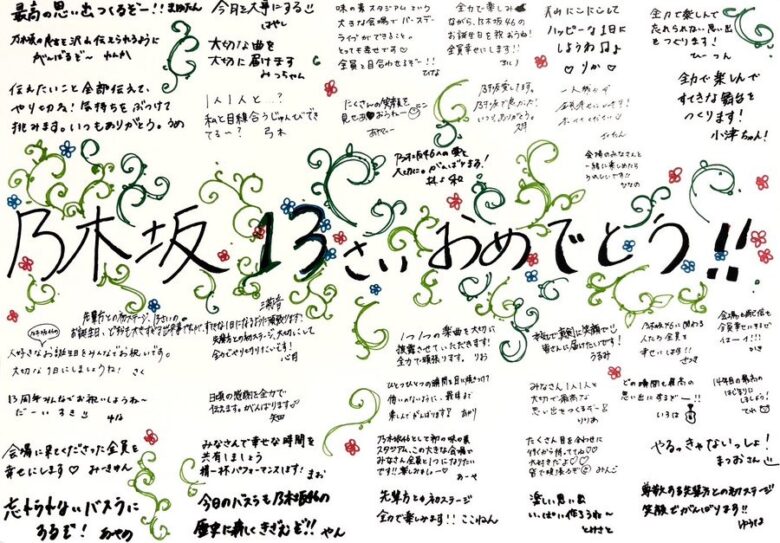 最高の思い出つくるぞー!! まゆたん
乃木坂の良さを沢山伝えられるように
がんばるぞ〜 れんか
伝えたいこと全部伝えて、
やり切ね! 気持ちをぶつけて
挑みます。いつもありがとう。うめ
今日を大事にする
はやし
大切な曲を
大切に届けます
みっちゃん
1人1人と…?
私と目線合うじゅんびでき
てるー? 弓木
味の素スタジアムという
大きな会場でバースデー
ライブができることが
とっても幸せです♡
全員と目合わせるぞー!!
ひな
にくさんの笑顔を
見せあおうねー
あやてぃー
全力で楽しみ
ながら、乃木坂46の
お誕生日を祝おうね!
全員幸せにします!
乃木坂愛してます。
いつもありがとう。
乃木坂46への愛を
大切に。がんばります!
林瑠和
にこにこして
ハッピーな1日に
しようね♫♪
♡りか♡
全力で楽しんで
忘れられない思い出
をつくります!
全力で楽しんで
すてきな舞台を
つくります!
小津ちゃん!
会場のみなさんと
一緒に楽しめたら
うれしいです!!
ななの
乃木坂 13さい おめでとう!!
人好きなお誕生日をみんなでお祝いです。
大切な1日にしましょうね! さく
13周年みんなでお祝いしようね〜
だーいすき
会場に来てくださった全員を
幸せにします♡ みーきゅん
忘れられないバスラに
するぞ! あやの
先輩方との初ステージ、大切にして
全力でやりきりたいです!
心月
日頃の感謝を全力で
伝えます。がんばります
矢田
みなさんで幸せな時間を
共有しましょう
精一杯パフォーマンスします! まお
今日のバスラも乃木坂46の
歴史に新しくきざむぞ!! やん
1つ1つの楽曲を大切に
披露させていただきます!
全力で頑張ります。 りお
ひとつひとつの瞬間を目に焼きつけて
悔いのないように、最後まで
楽しんでがんばります!
乃木坂46として初の味の素
スタジアム、この大きな会場で
みなさん全員と1つになりたい
です!! 楽しみましょー
あーや
先輩方との初ステージ
全力で楽しみます!! ここねん
幸せに届けたいです!
うるみ
みなさん1人1人と
大切で最高な
思い出をつくるぞー
りりあ
たくさん目を合わせに
行くから待っててね♡
大好きだよ♡
楽しい思い出
いっぱい作ろうね〜
とみさと
乃木坂46に関わる
人たち全員を
幸せにします!! さつき
どの瞬間も最高の
思い出にするぞー!!
いろは
会場も配信も
全員幸せにするぞ
はーオ!!
かき
14年目の最高の
はじまりに
しましょう!
てれ
やるっきゃないっしょ!
まつおさん
尊敬する先輩方との初ステージ
笑顔でがんばります!
ゆうは